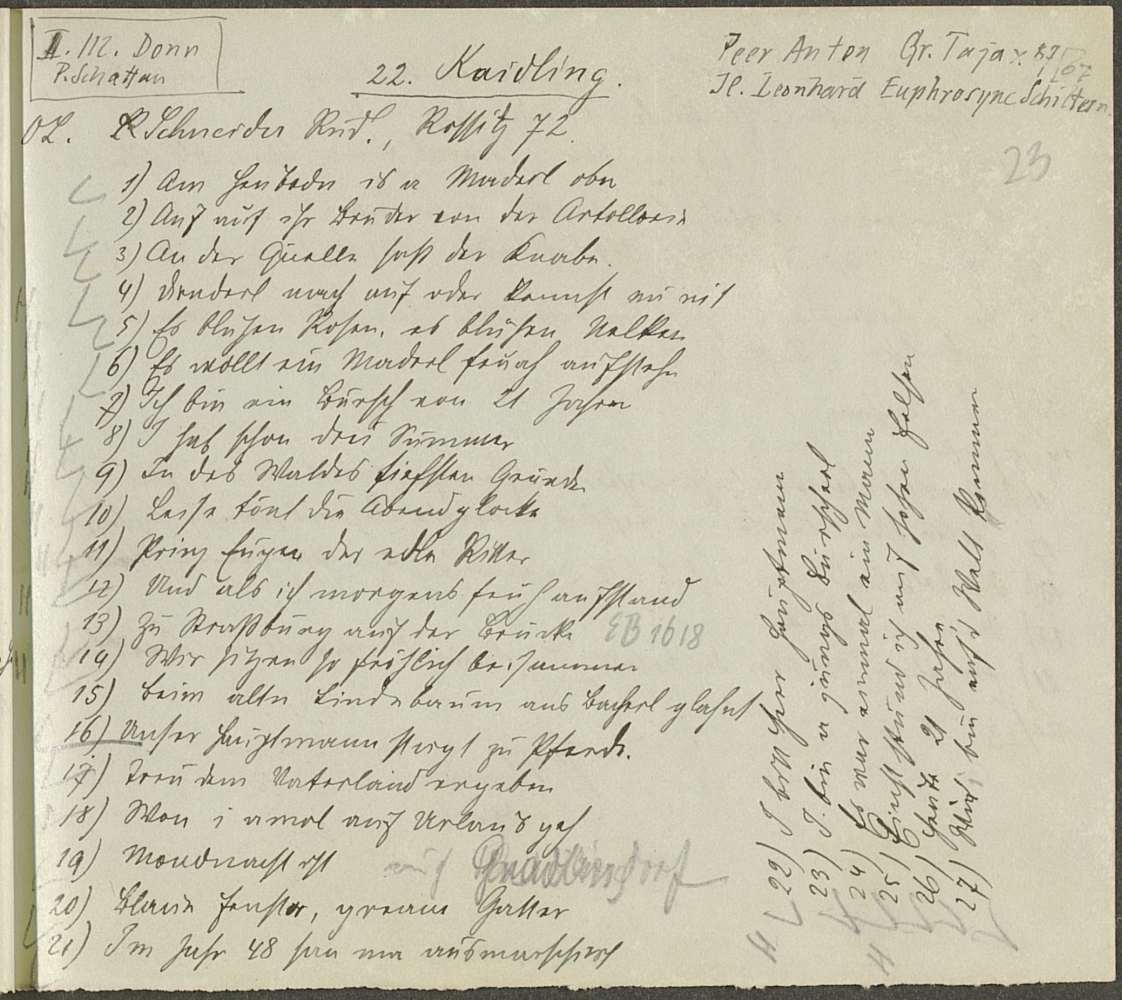 II. III. Donn
P. Schattau
22. Kaidling.
Peer Anton Gr. Tajax 87
Jl. Leonhard Euphrosyne Schiltern
23
OL. Schneider Rud., Rossitz 72.
1) Am Heuboden is a Maderl obn
2) Auf auf ihr Brüder von der Artollerie
3) An der Quelle saß der Knabe.
4) Dienderl mach auf oder kennst mi nit
5) Es blühen Rosen, es blühen Nelken
6) Es wollt ein Maderl fruah aufstehn
7) Ich bin ein Bursch von 21 Jahren
8) I hab schon drei Summer
9) In des Waldes tiefsten Gründen
10) Leise tönt die Abendglocke
11) Prinz Eugen der edle Ritter
12) Und als ich morgens früh aufstand
13) Zu Straßburg auf der Brücke EB 1618
14) Wir sitzen so fröhlich beisammen
15) Beim altn Lindnbaum ans Bacherl glahnt
16) Unser Hauptmann steigt zu Pferde.
17) Treu dem Vaterland ergeben
18) Won i amol auf Urlaub geh
19) Mondnacht ist auf
20) Blaue Fenster, greane Gatter
21) Im Jahr 48 san ma ausmarschirt
22) I bitt Herr Hauptmann
23) I bin a jungs Bürscherl
24) Es war einmal ein Mann
25) Einst stund ich auf hohen Felsen
26) Heute 21 Jahre
27) bin auf d Welt kommen